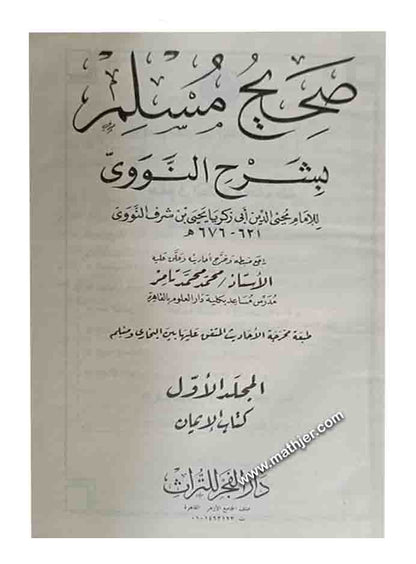 صَحِيحُ مُسْلِمٍ
بِشَرْحِ النَّوَوِىّ
للإمام محيى الدين أبى زكريا يحيى بن شرف النووى
٦٢١ - ٦٧٦ هـ
راجع ضبطه وخرج أحاديثه وعلق عليه
الأستاذ / محمد محمد تامر
مدرس مساعد بكلية دار العلوم بالقاهرة
طبعة مخرجة الأحاديث المتفق عليها بين البخارى ومسلم
المجلد الأول
كتاب الإيمان
www.mathjer.com
دار الفجر للتراث
خلف الجامع الأزهر القاهرة